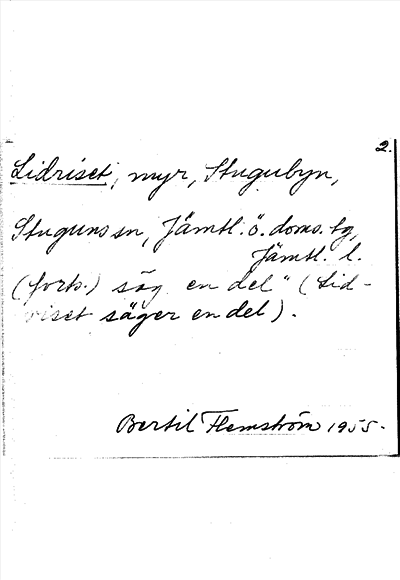 2.
Lidriset, myr, Stugubyn,
Stuguns sn, Jämtl. ö. doms. tg,
Jämtl. l.
(forts.) säg en del" (Lid-
riset säger en del).
Bertil Flemström 1955.